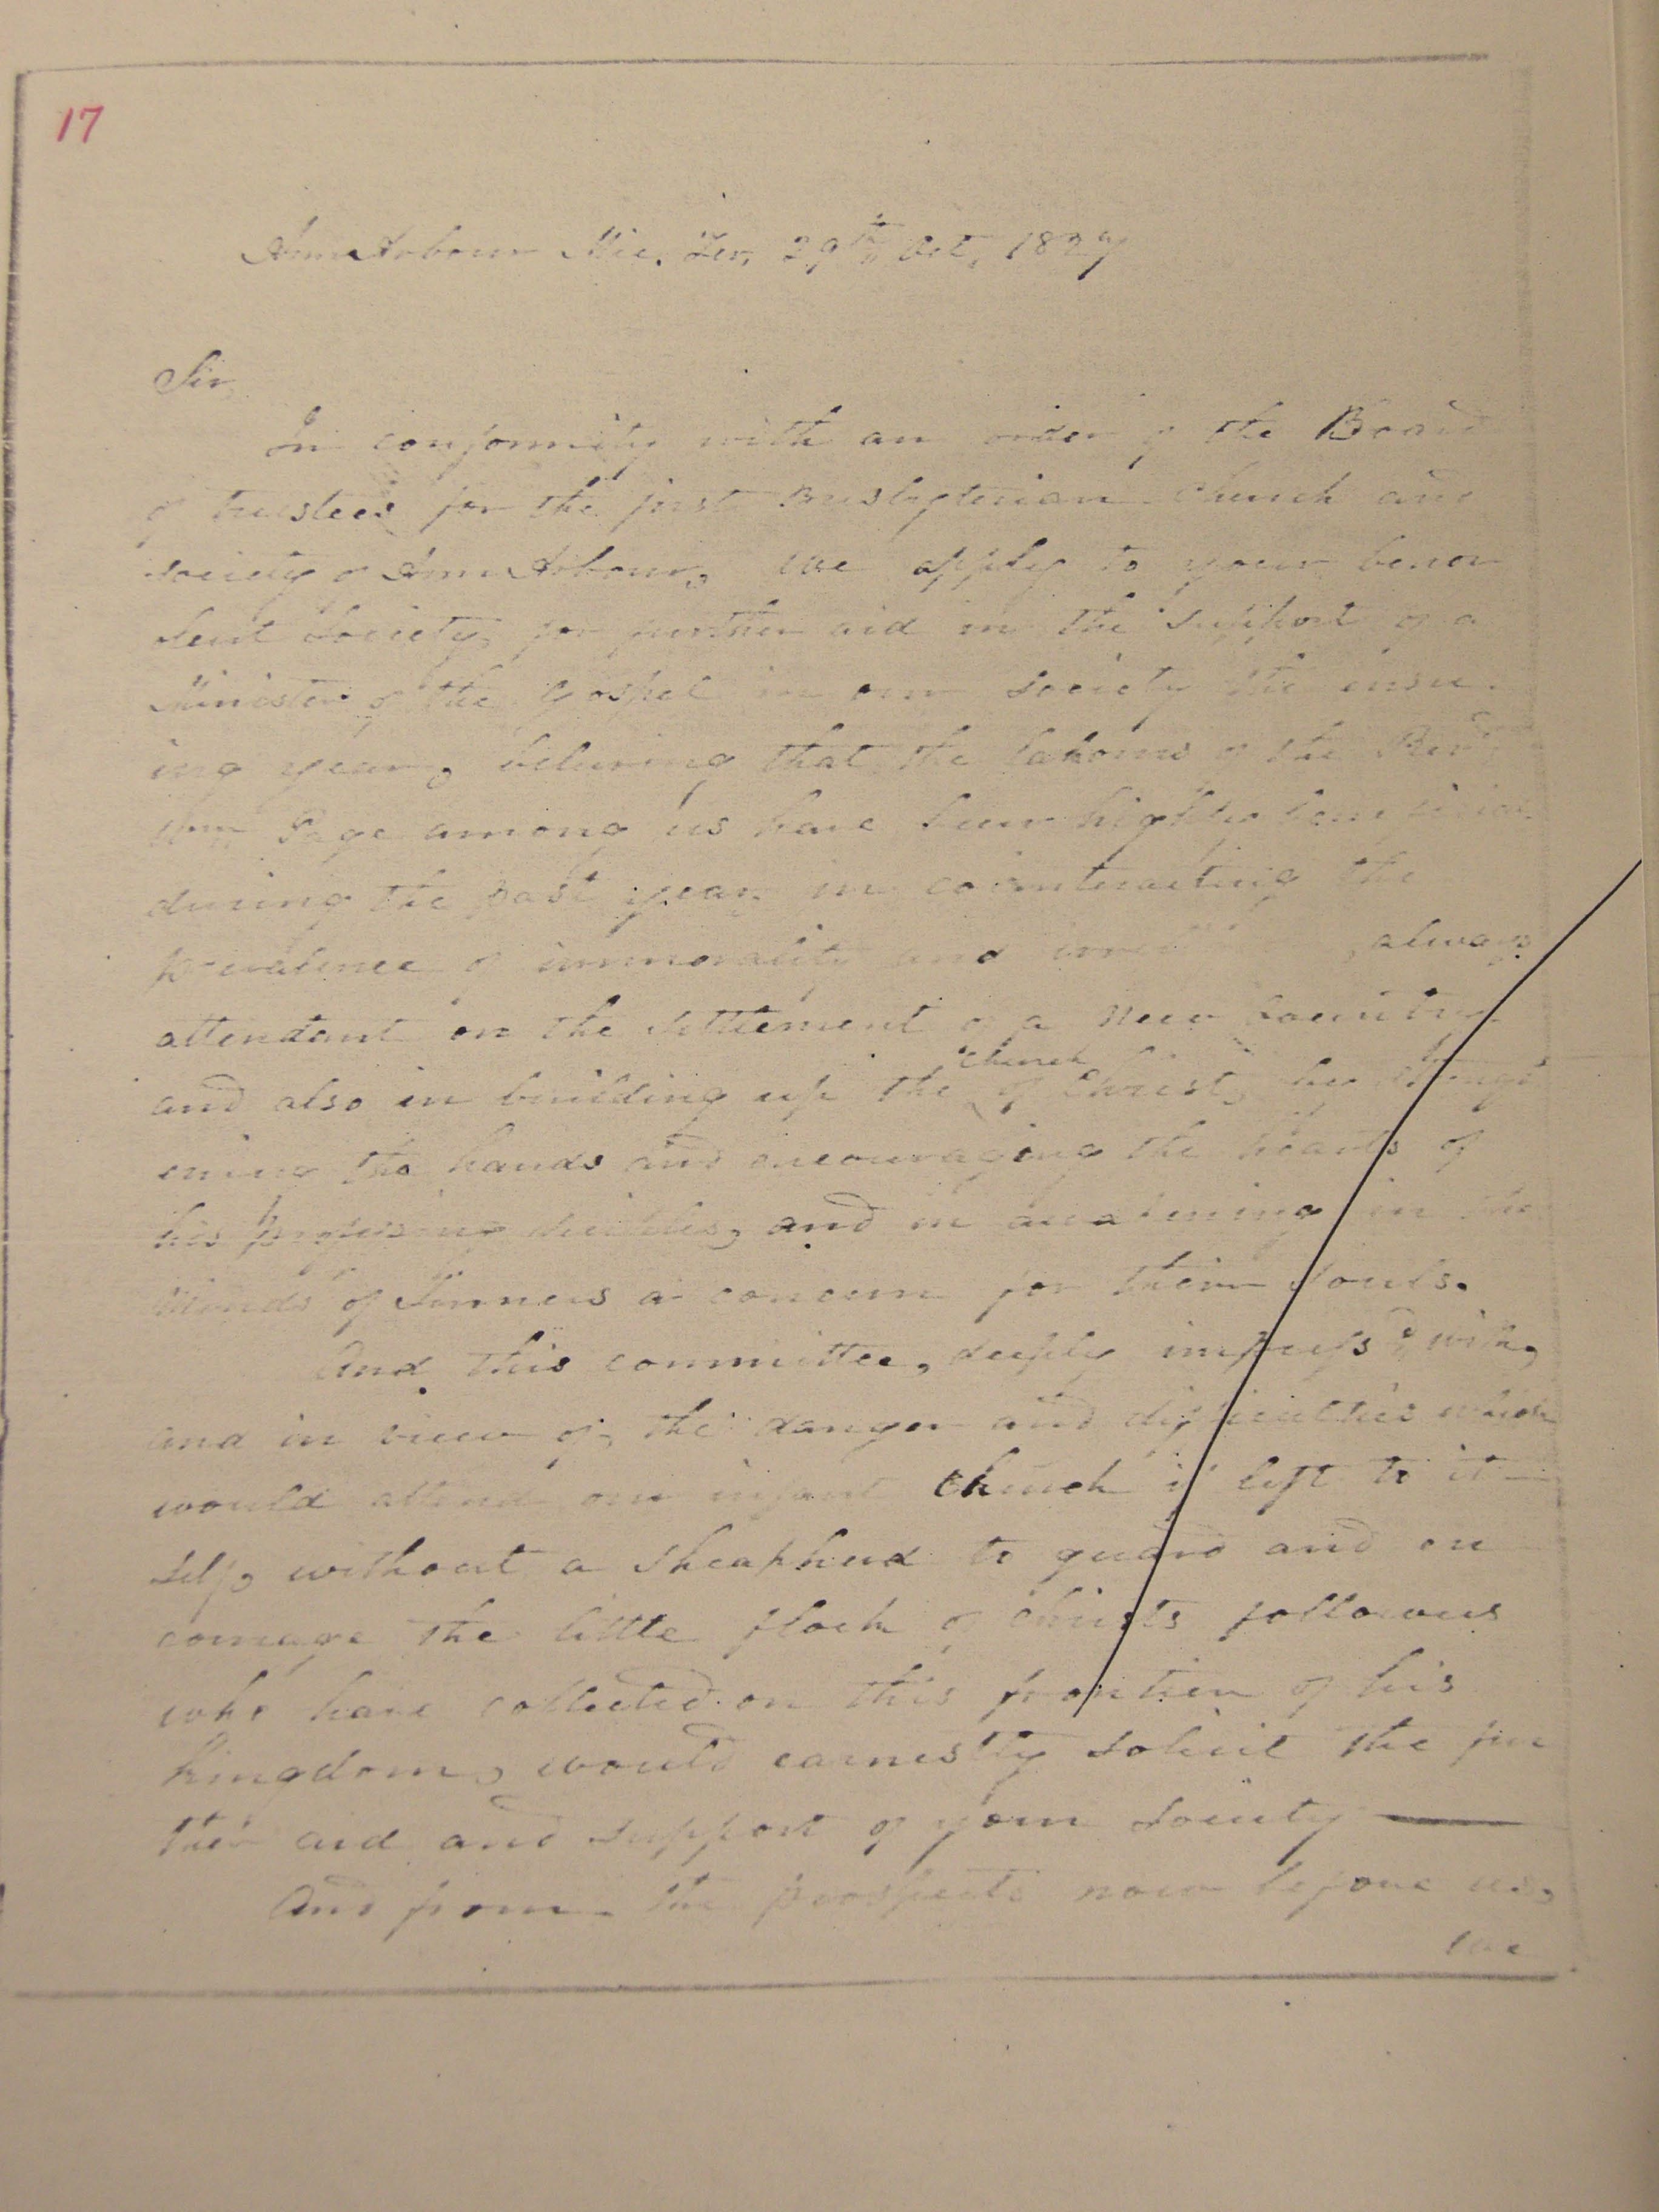 17
Ann Arbour Mic. Ter, 29th, Oct, 1827
Sir,
In conformity with an order of the Board
of trustees for the first Presbyterian Church and
society of Ann Arbour, we apply to your benev
olent Society, for further aid in the support of a
Minister of the Gospel in our society the insu
ing year, believing that the labours of the Revd,
Wm, Page among us have been highly beneficial
during the past year in counteracting the
prevalence of immorality and always
attendant on the settlement of a New Country
and also in building up the church of Christ, by strength
ening the hands and encouraging the hearts of
his professing and in awakening in the
Minds of Sinners a concern for their souls.
And this committee, deeply impress'd with,
and in view of, the danger and difficulties which
would attend our infant Church if left to it
self, without a sheapherd to guard and en
courage the little flock of Christs followers
who have collected on this frontier of his
kingdom, would earnestly solicit the fur
ther aid and support of your Society —
And from the prospects now before us,
we